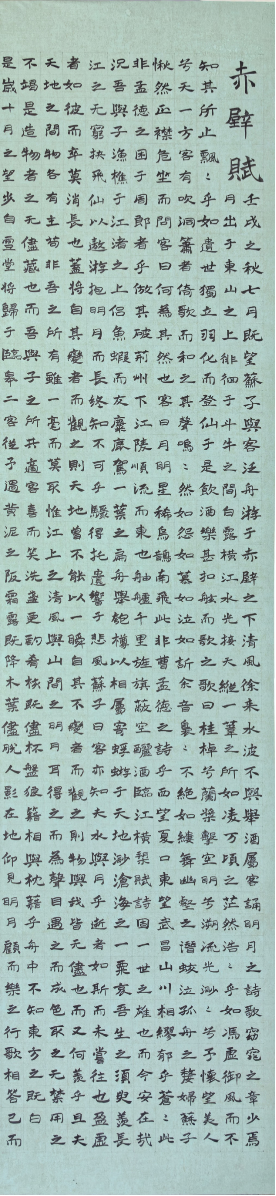 赤壁賦
壬戌之秋七月既望蘇子與客泛舟游于赤壁之下清風徐來水波不興舉酒屬客誦明月之詩歌窈窕之章少焉
月出于東山之上徘徊于斗牛之間白露橫江水光接天縱一葦之所如凌万頃之茫然浩〻乎如馮虛御風而不
知其所止飄〻乎如遺世獨立羽化而登仙于是飲酒樂甚扣舷而歌之歌曰桂棹兮蘭槳擊空明兮溯流光渺〻兮予懷望美人
兮天一方客有吹洞簫者倚歌而和之其聲嗚〻然如怨如慕如泣如訴余音裊〻不絕如縷舞幽壑之潛蛟泣孤舟之嫠婦蘇子
愀然正襟危坐而問客曰何爲其然也客曰月明星稀烏鵲南飛此非曹孟德之詩乎西望夏口東望武昌山川相繆郁乎蒼〻此
非孟德之困于周郎者乎方其破荊州下江陵順流而東也舳艫千里旌旗蔽空釃酒臨江橫槊賦詩固一世之雄也而今安在哉
況吾與子漁樵于江渚之上侶魚蝦而友麋鹿駕一葉之扁舟舉匏樽以相屬寄蜉蝣于天地渺滄海之一粟哀吾生之須臾羨長
江之无窮挾飛仙以遨游抱明月而長終知不可乎驟得托遺響于悲風蘇子曰客亦知夫水與月乎逝者如斯而未嘗往也盈虛
者如彼而卒莫消長也蓋將自其變者而觀之則天地曾不能以一瞬自其不變者而觀之則物與我皆无盡也而又何羨乎且夫
天地之間物各有主苟非吾之所有雖一毫而莫取惟江上之清風與山間之明月耳得之而爲聲目遇之而成色取之无禁用之
不竭是造物者之无盡藏也而吾與子之所共適客喜而笑洗盞更酌肴核既盡杯盤狼籍相與枕藉乎舟中不知東方之既白
是歲十月之望步自雪堂將歸于臨皋二客從予過黃泥之阪霜露既降木葉盡脫人影在地仰見明月顧而樂之行歌相答已而